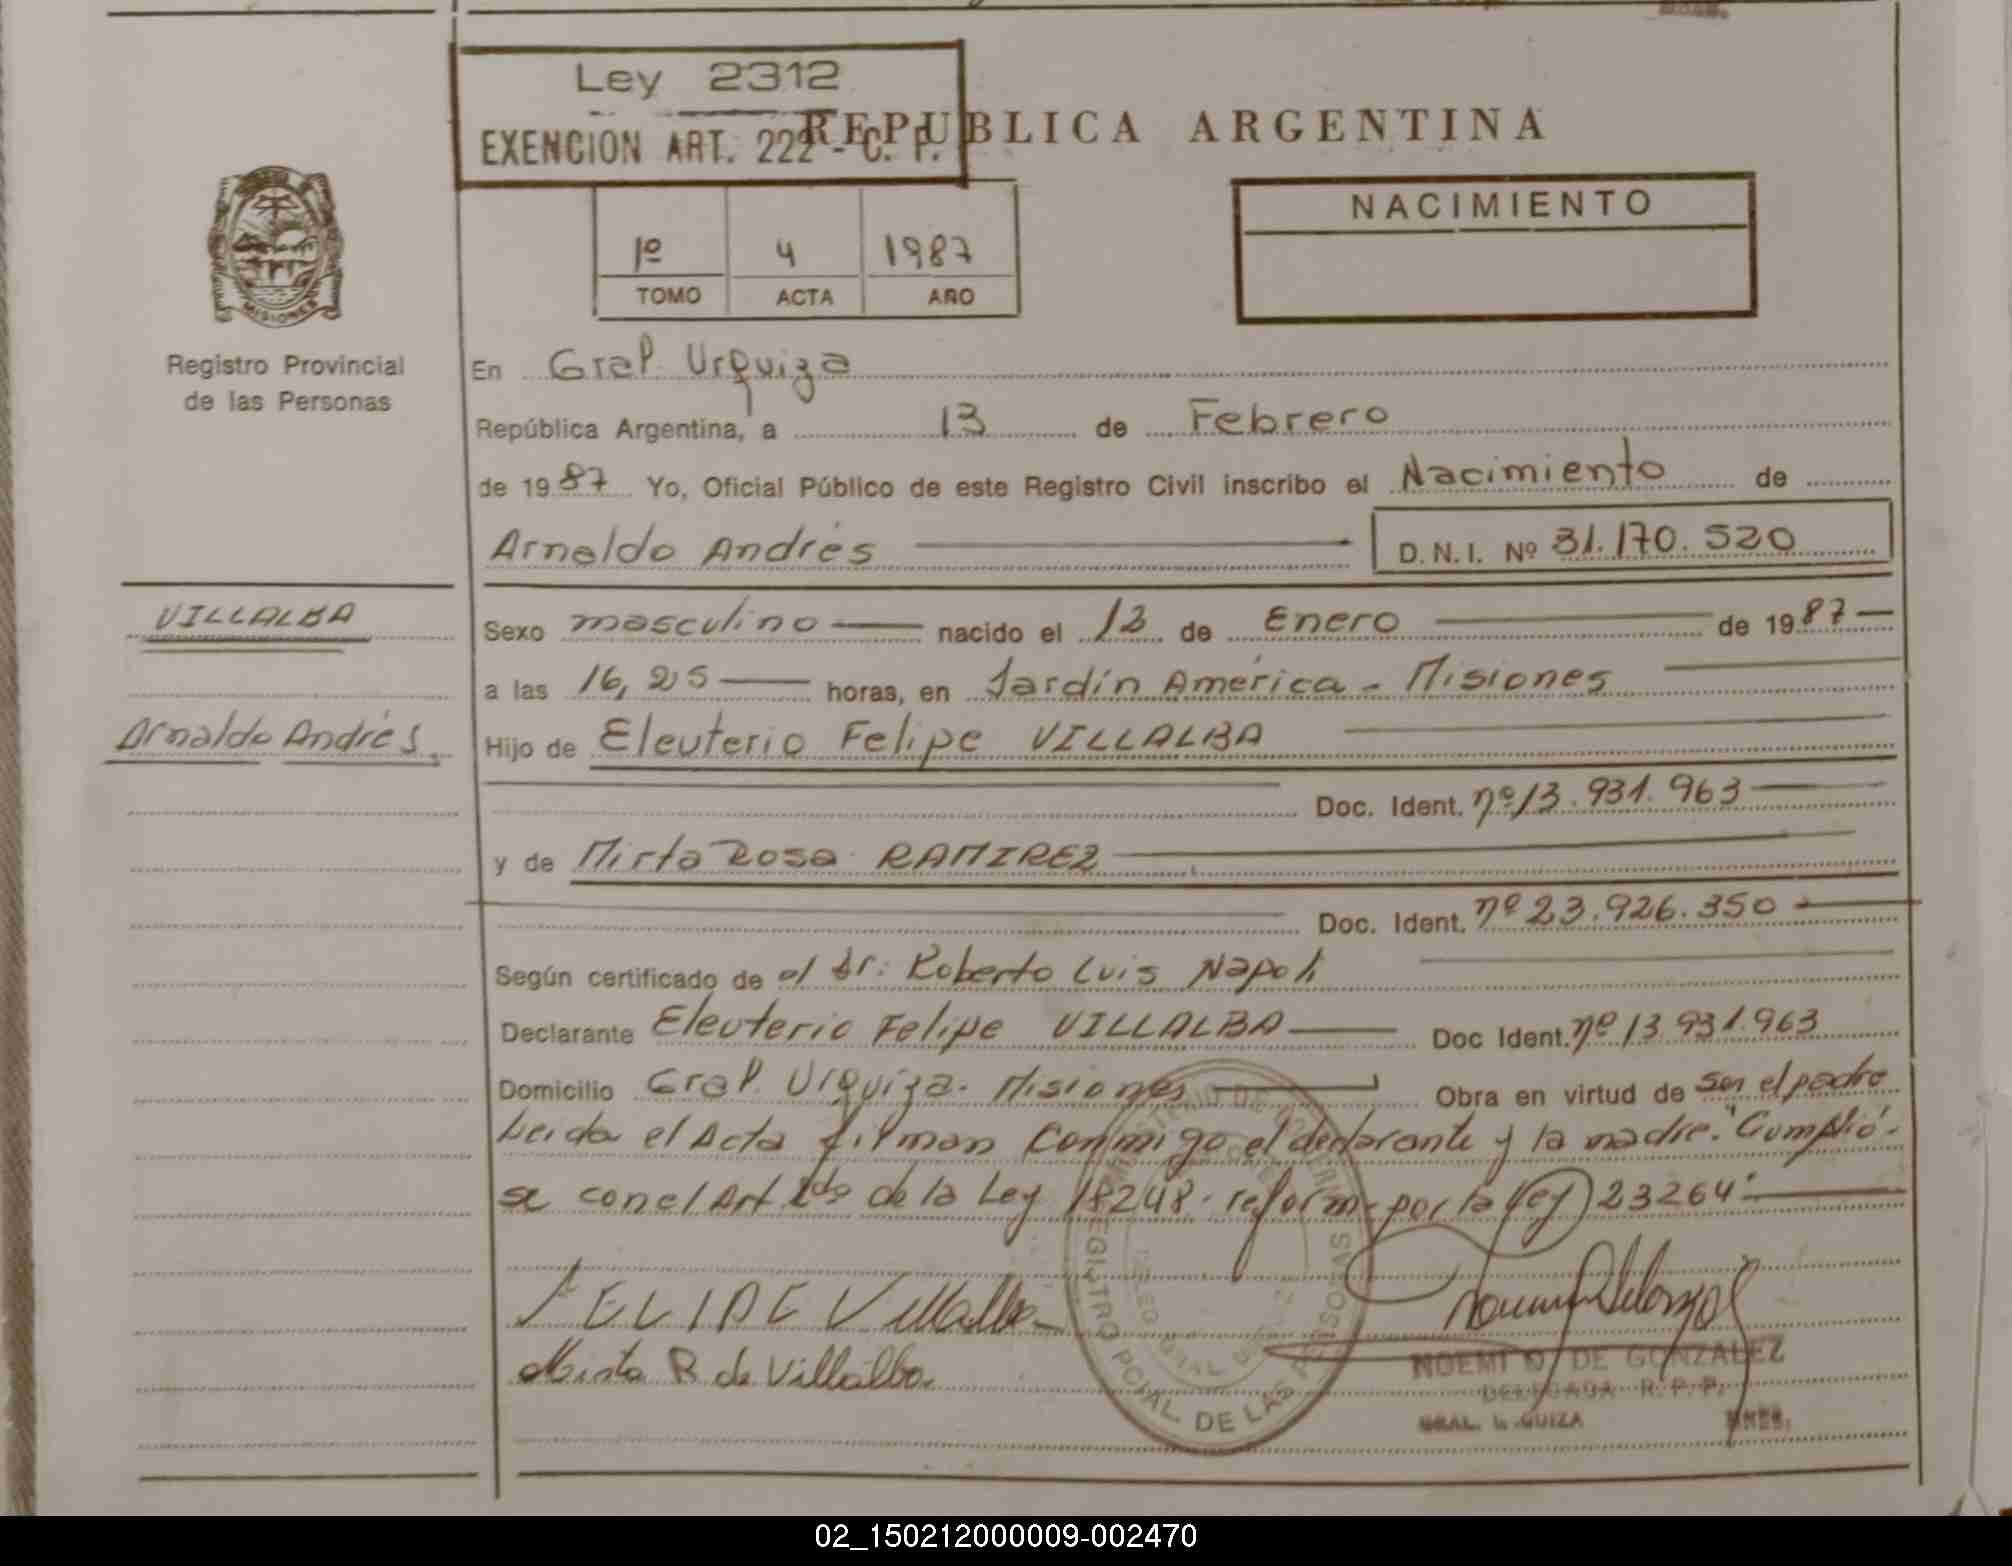 Ley 2312
EXENCION ART. 222 - C. F.
REPUBLICA ARGENTINA
NACIMIENTO
1º 4 1987
TOMO ACTA AÑO
MISIONES
Registro Provincial
de las Personas
En Gral. Urquiza
República Argentina, a 13 de Febrero
de 1987 Yo, Oficial Público de este Registro Civil inscribo el Nacimiento de
Arnaldo Andrés D.N.I. Nº 31.170.520
VILLALBA
Arnaldo Andrés.
Sexo masculino nacido el 12 de Enero de 1987
a las 16,25 horas, en Jardín América - Misiones
Hijo de Eleuterio Felipe VILLALBA
Doc. Ident. nº 13.931.963
y de Mirta Rosa RAMIREZ
Doc. Ident. nº 23.926.350
Según certificado de el Dr: Roberto Luis Napoli
Declarante Eleuterio Felipe VILLALBA Doc Ident. nº 13.931.963
Domicilio Gral. Urquiza. Misiones Obra en virtud de ser el padre
Leida el Acta firman conmigo el declarante y la madre. "Cumplió-
se con el Art. 2do de la Ley 18248. reform. por la Ley 23264"
FELIPE Villalba
Mirta R de Villalba
REGISTRO PCIAL. DE LAS PERSONAS
NOEMI D. DE GONZALEZ
DELEGADA R. P. P.
GRAL. URQUIZA MNES.
02_150212000009-002470